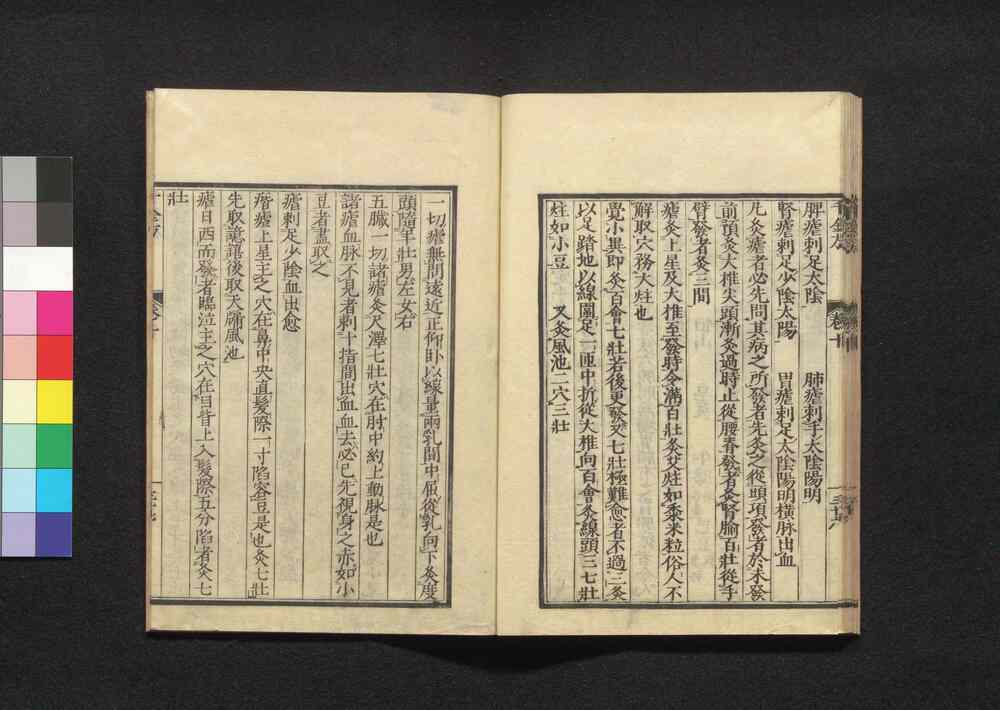 脾瘧刺足太陰　肺瘧刺手太陰陽明
腎瘧刺足少陰太陽　胃瘧刺足太陰陽明橫脉出血
凡灸瘧者必先問其病之所發者先灸之從頭項發者於未發
前預灸大椎尖頭漸灸過時止從腰脊發者灸腎腧百壯從手
臂發者灸三間
瘧灸上星及大椎至發時令滿百壯灸艾炷如黍米粒俗人不
解取穴務大炷也
覺小異即灸百會七壯若後更發又七壯極難愈者不過三灸
以足踏地以線圍足一匝中折從大椎向百會灸線頭三七壯
炷如小豆　又灸風池二穴三壯
一切瘧無問遠近正仰卧以線量兩乳間中屈從乳向下灸度
頭隨年壯男左女右
五臓一切諸瘧灸尺澤七壯穴在肘中約上動脉是也
諸瘧血脉不見者刺十指間出血血去必已先視身之赤如小
豆者盡取之
瘧刺足少陰血出愈
痎瘧上星主之穴在鼻中央直髮際一寸陷容豆是也灸七壯
先取譩譆後取天牖風池
瘧日西而發者臨泣主之穴在目眥上入髮際五分陷者灸七
壯
卷十